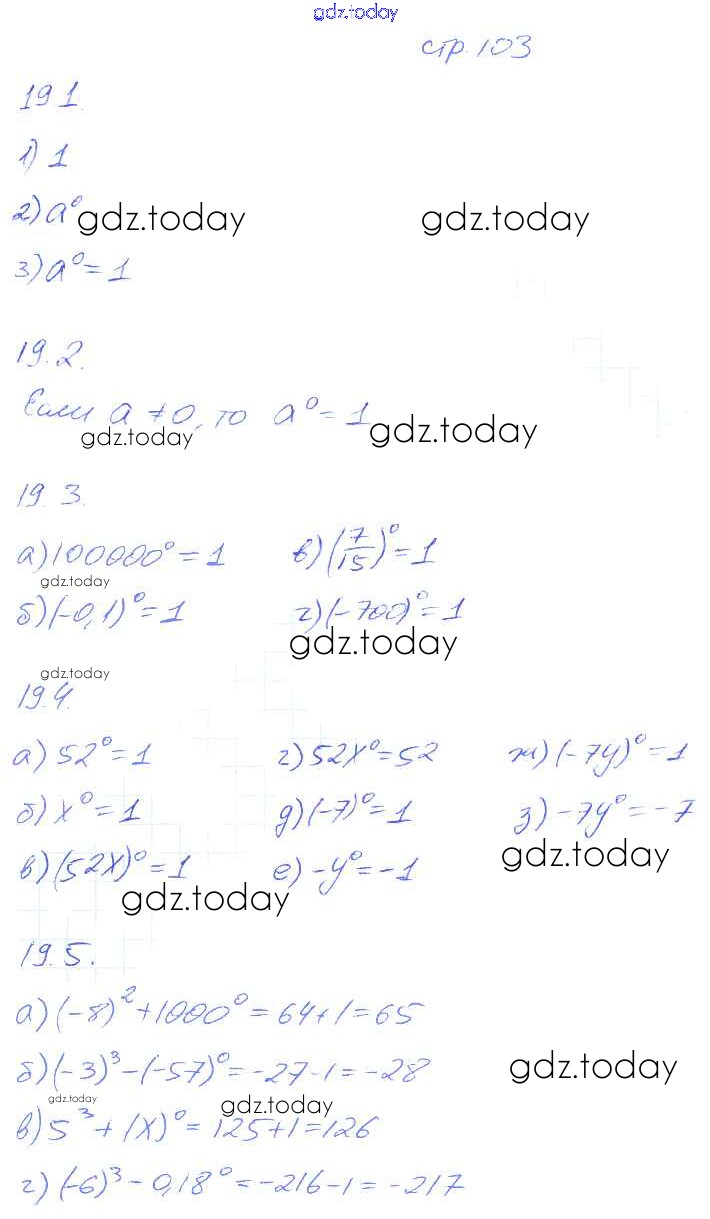 gdz.today
стр. 103
19.1.
1) 1
2) a⁰ gdz.today gdz.today
3) a⁰ = 1
19.2.
Если a ≠ 0, то a⁰ = 1
gdz.today gdz.today
19.3.
а) 100000⁰ = 1 в) (7/15)⁰ = 1
gdz.today
б) (-0,1)⁰ = 1 г) (-700)⁰ = 1
gdz.today
gdz.today
19.4.
а) 52⁰ = 1 г) 52x⁰ = 52 ж) (-7y)⁰ = 1
б) x⁰ = 1 д) (-7)⁰ = 1 з) -7y⁰ = -7
в) (52x)⁰ = 1 е) -y⁰ = -1 gdz.today
gdz.today
19.5.
а) (-8)² + 1000⁰ = 64 + 1 = 65
б) (-3)³ - (-57)⁰ = -27 - 1 = -28 gdz.today
gdz.today gdz.today
в) 5³ + (x)⁰ = 125 + 1 = 126
г) (-6)³ - 0,18⁰ = -216 - 1 = -217